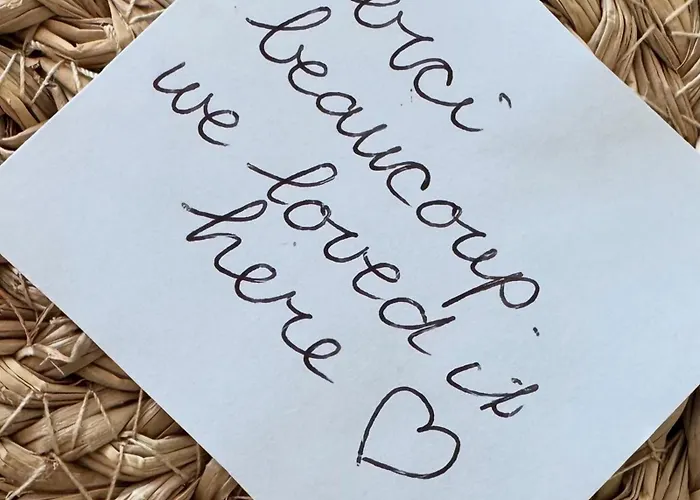 erci
beaucoup
we loved it
here ♡